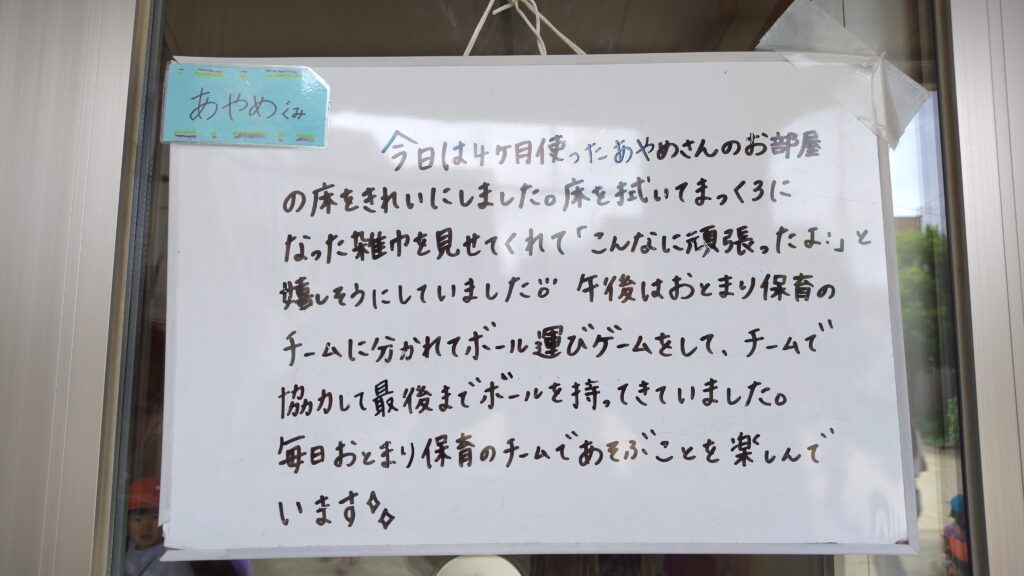 あやめぐみ
今日は4ヶ月使ったあやめさんのお部屋
の床をきれいにしました。床を拭いてまっくろに
なった雑巾を見せてくれて「こんなに頑張ったよ!」と
嬉しそうにしていました。午後はおとまり保育の
チームに分かれてボール運びゲームをして、チームで
協力して最後までボールを持ってきていました。
毎日おとまり保育のチームであそぶことを楽しんで
います